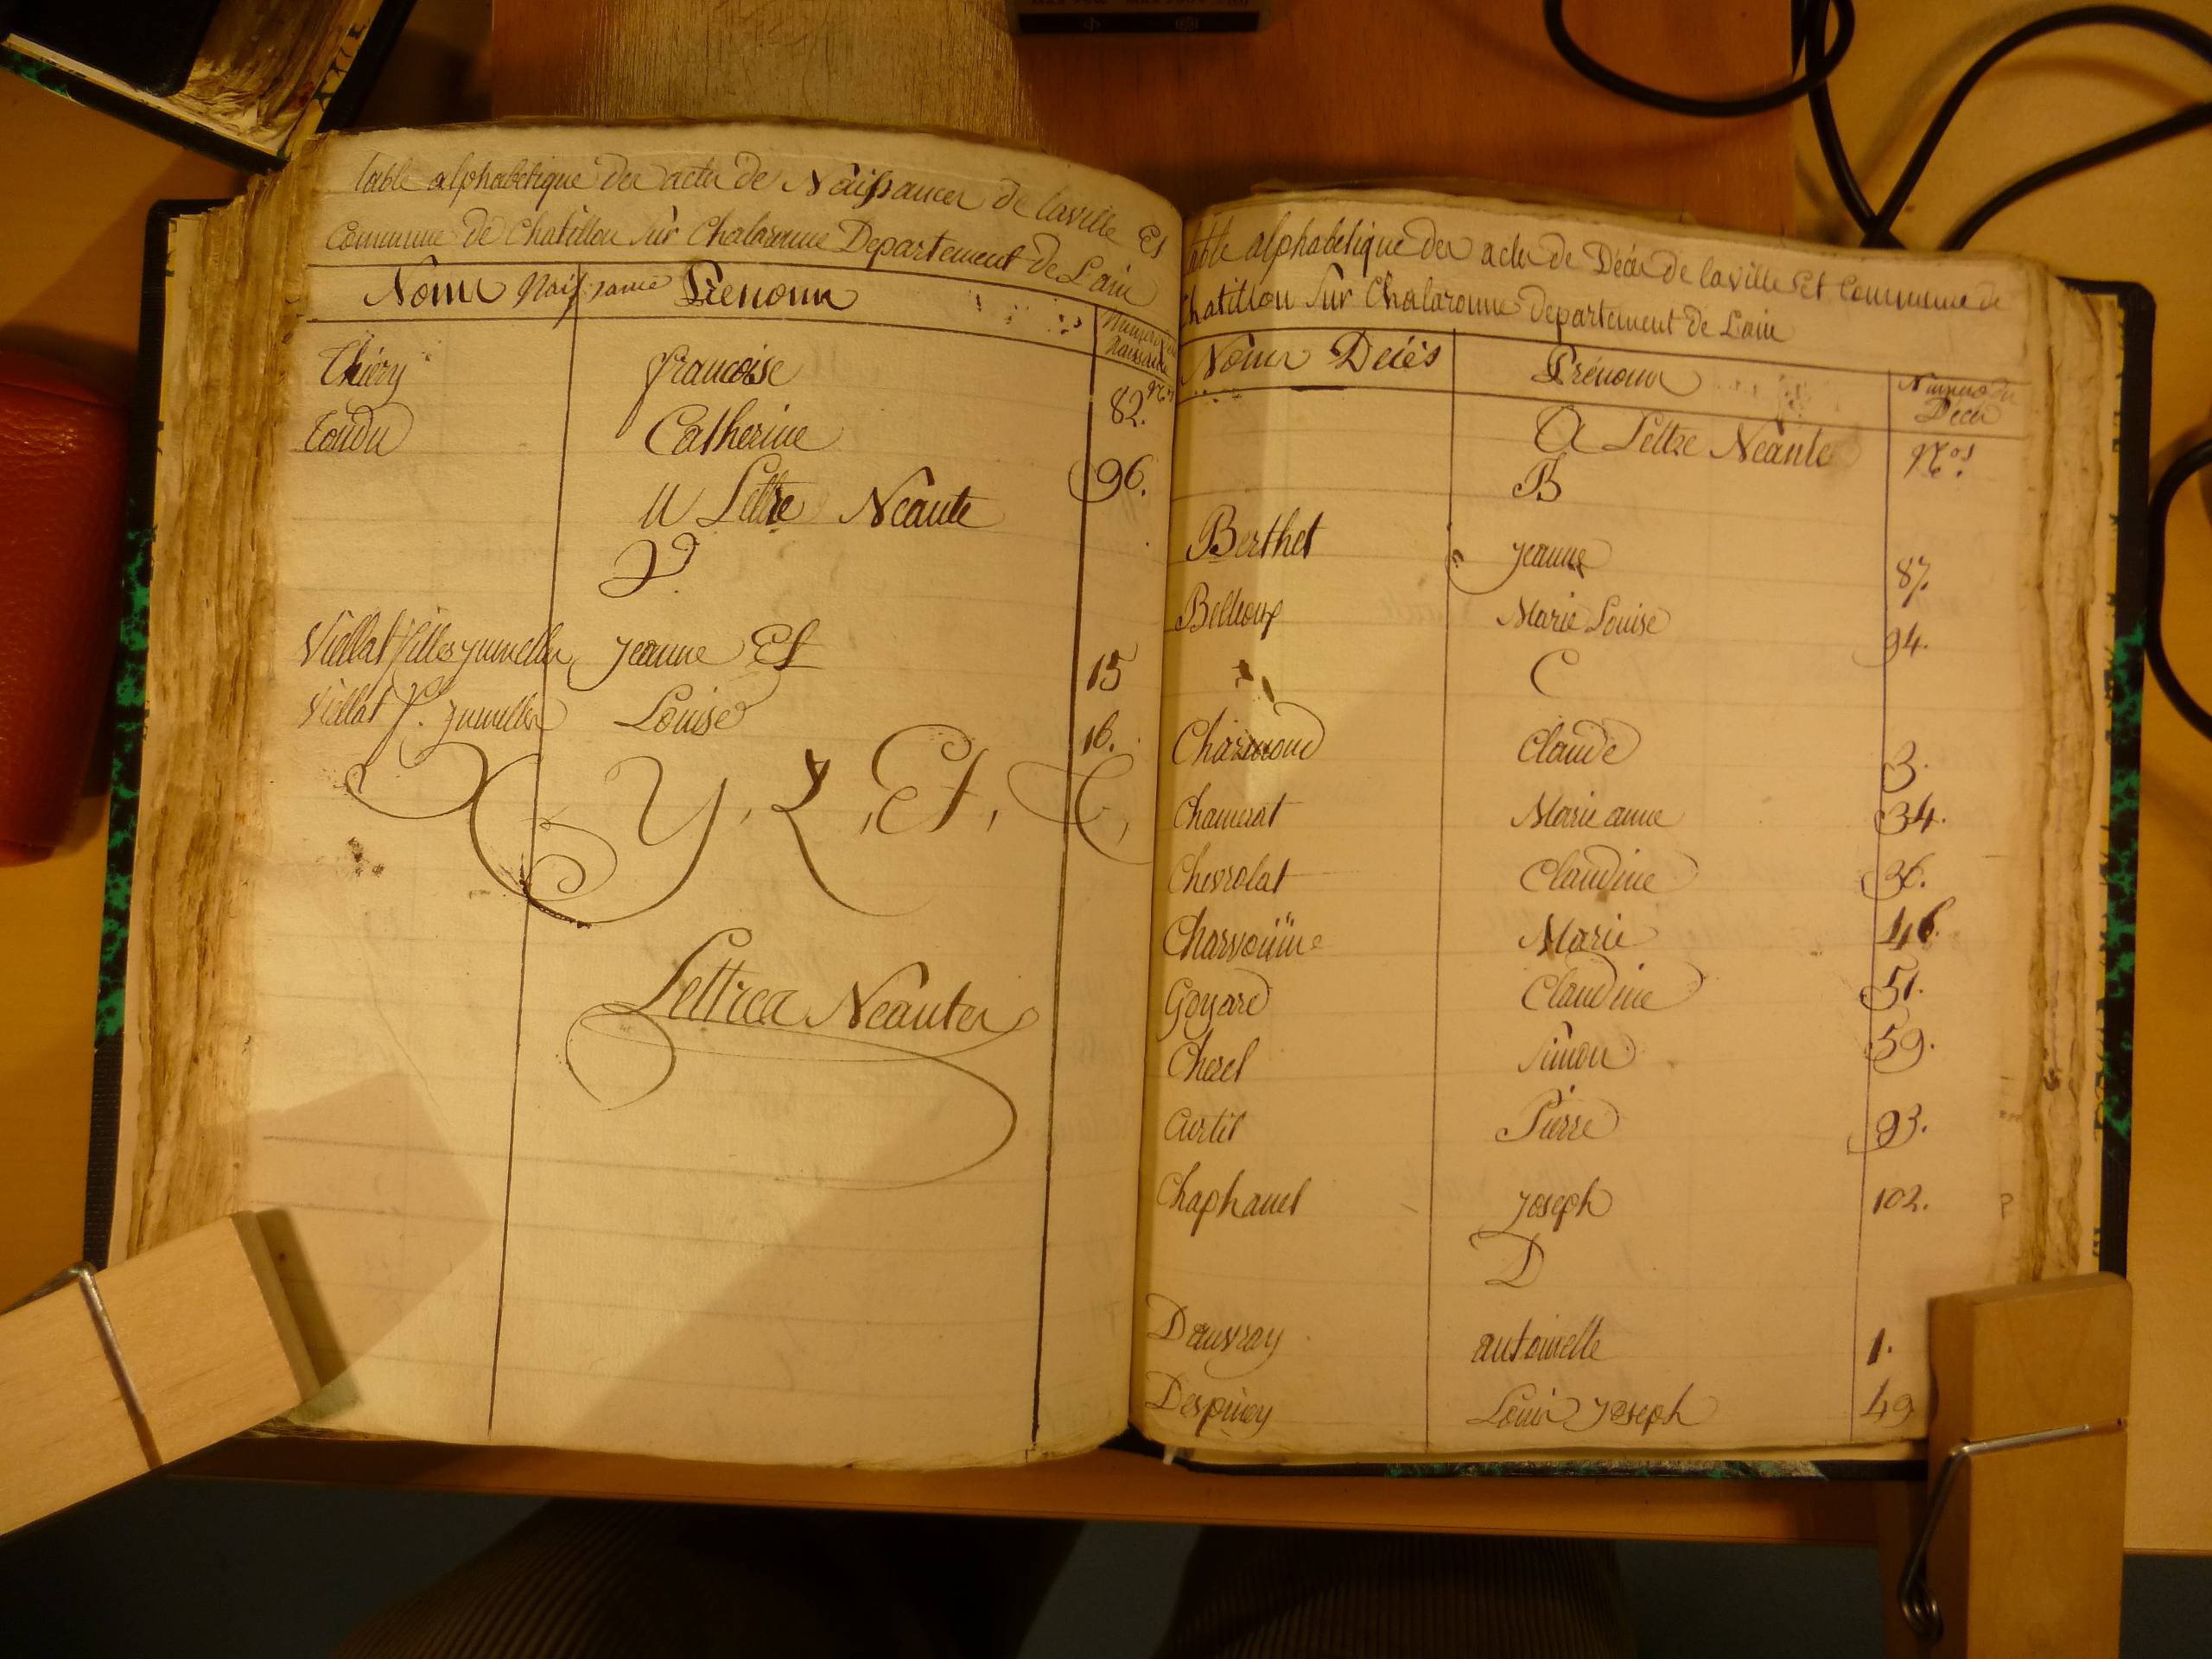 table alphabetique des actes de Naissances de laville Et
Commune de Chatillon Sur Chalaronne Departement de Lain
Noms Naissance Prenoms Numero Naissance
Nos
Thiery francoise 82.
tondu Catherine 96.
U Lettre Néante
V
Viellat filles jumelles jeanne Et 15
Viellat f. jumelles Louise 16.
X Y, Z, Et, &,
Lettres Néantes
table alphabetique des actes de Décès de laville Et Commune de
Chatillon Sur Chalaronne departement de Lain
Noms Décès Prénoms Numero du Décès
A Lettre Néante Nos.
B
Berthet jeanne 87.
Marie Louise 94.
C
Charmond Claude 3.
Chamerat Marie anne 34.
Chevrolat Claudine 36.
Charvoüine Marie 46.
Goyard Claudine 51.
Cherel Simon 59.
Curtil Pierre 93.
Chaphanel joseph 102.
D
Dauvray antoinette 1.
Despiney Louis joseph 49